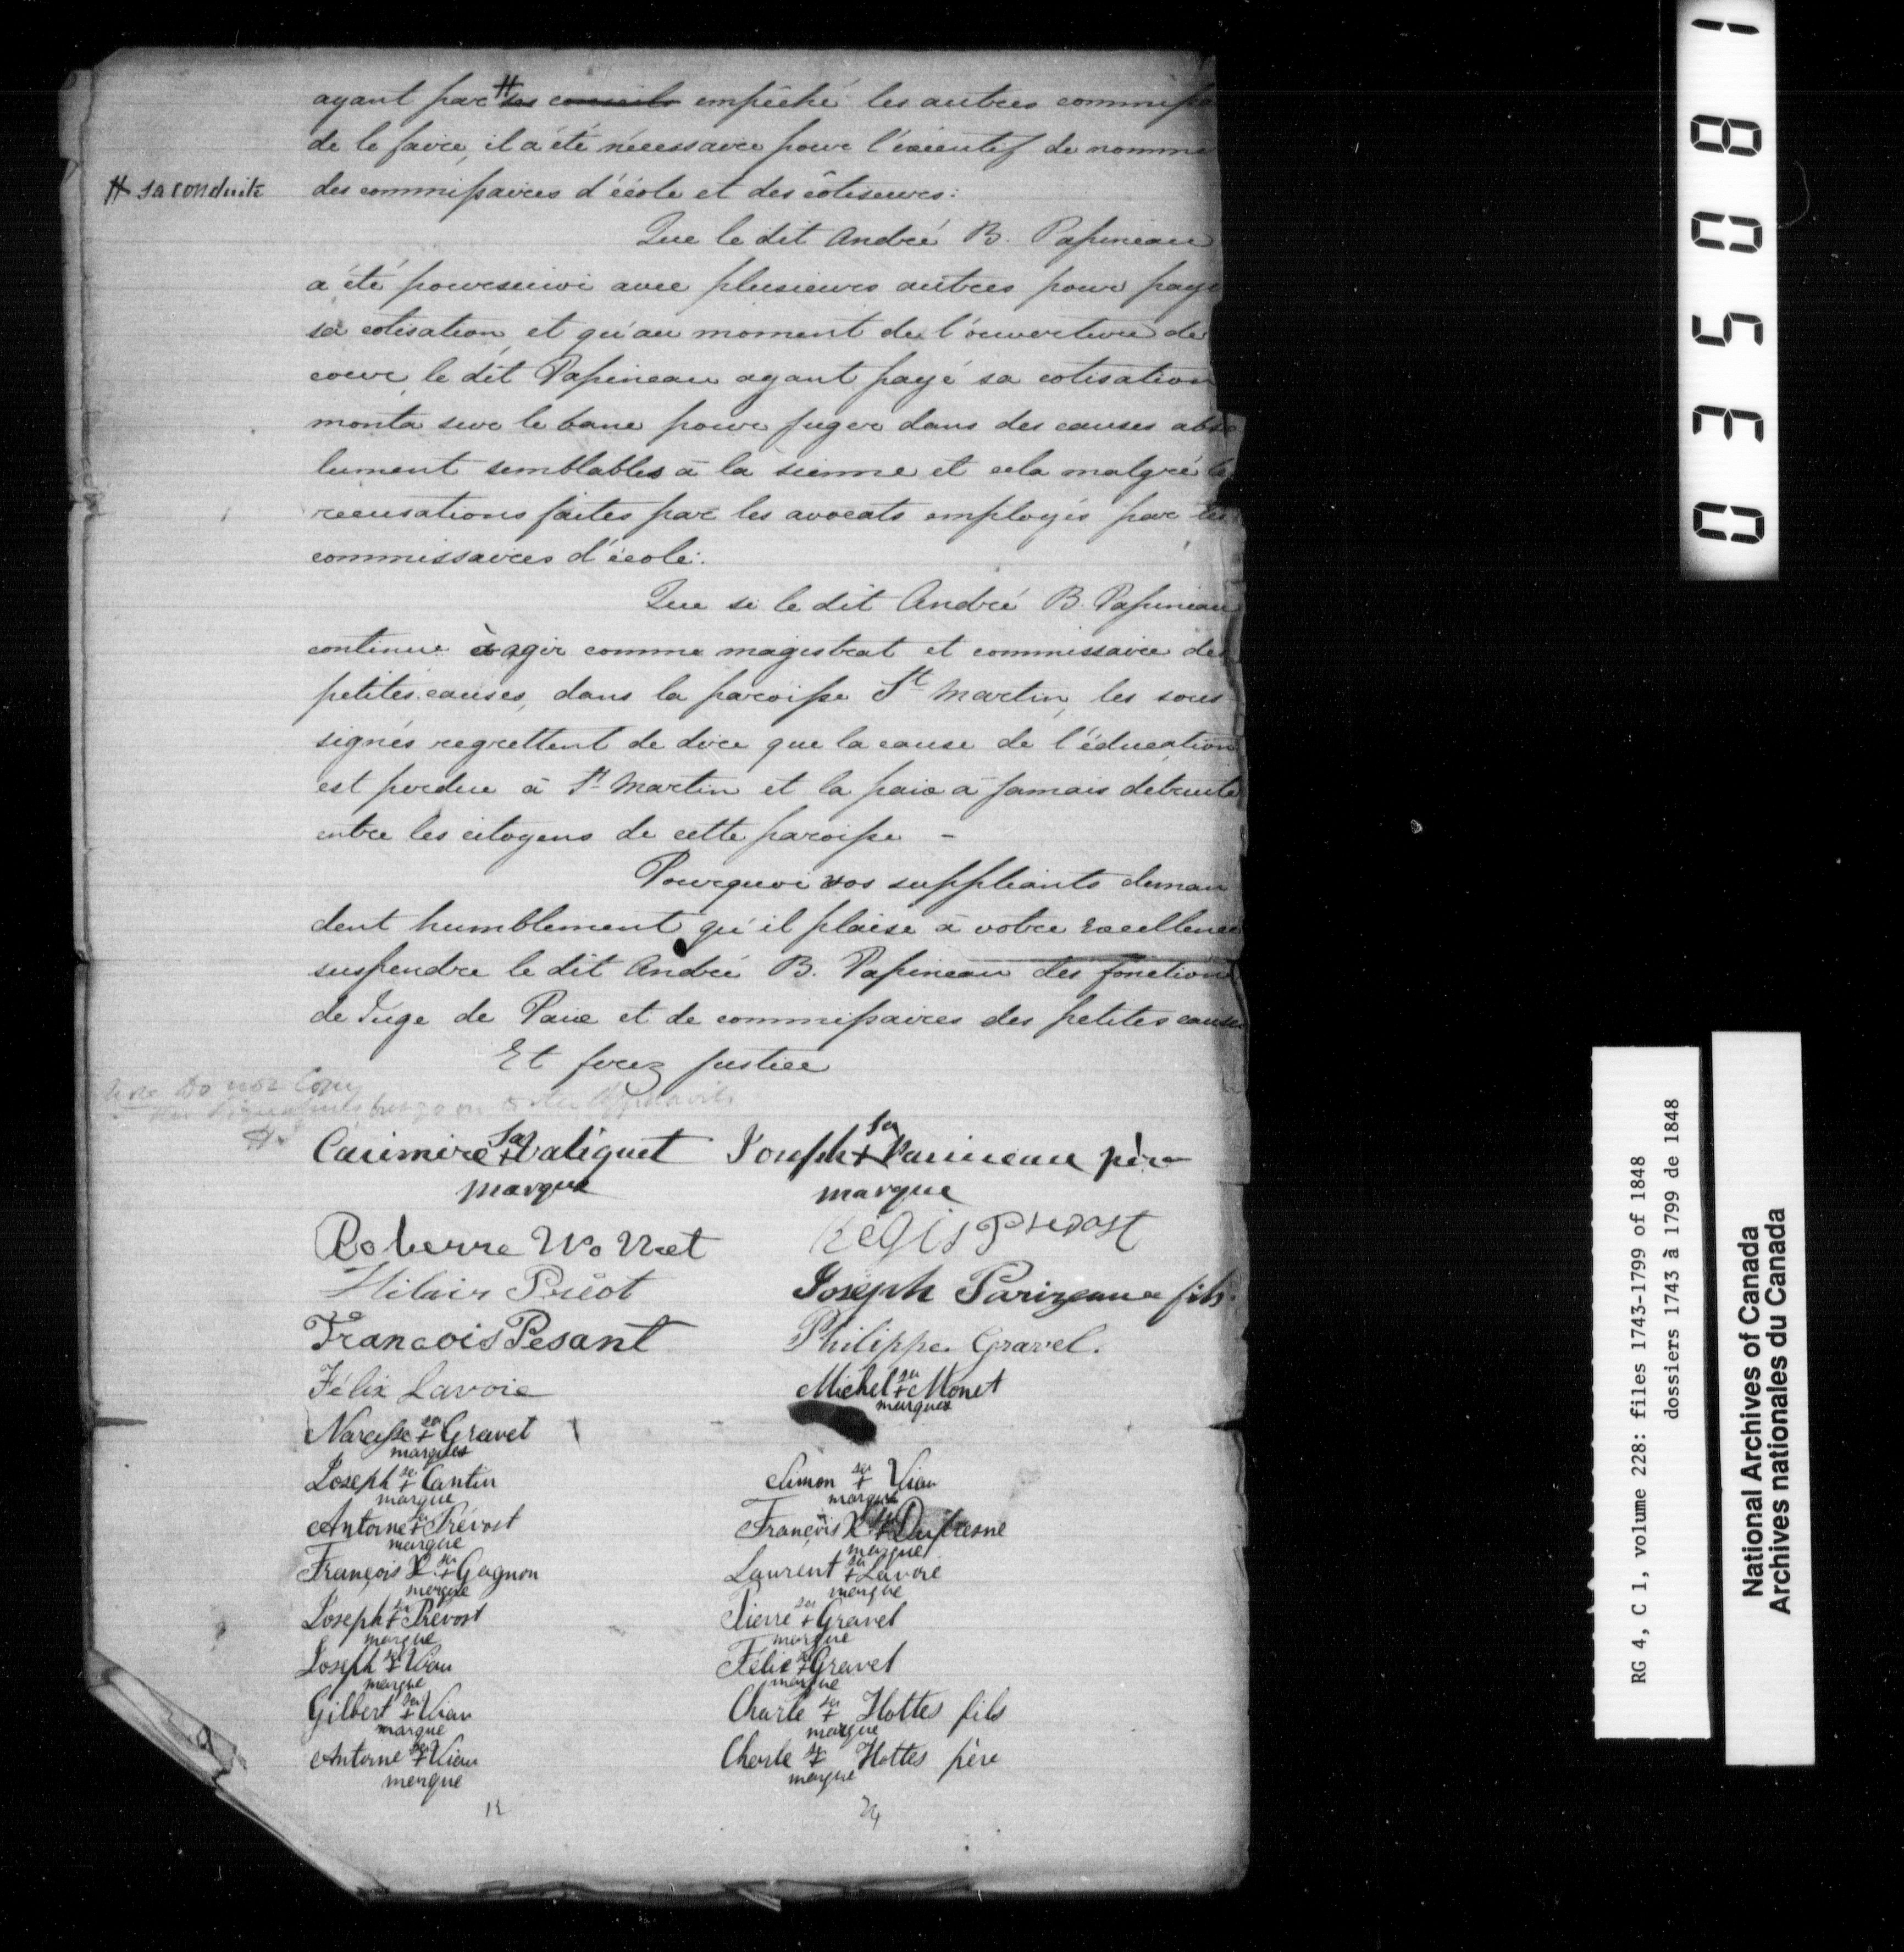 ayant par # ses conseils empêché les autres commissa
de le faire, il a été nécessaire pour l'exécutif de nomme
# sa conduite
des commissaires d'école et des côtiseurs:
Que le dit André B. Papineau
a été poursuivi avec plusieurs autres pour paye
sa cotisation, et qu'au moment de l'ouverture de
cour, le dit Papineau ayant payé sa cotisation
monta sur le banc pour juger dans des causes abso
lument semblables à la sienne et cela malgré les
recusations faites par les avocats employés par les
commissaires d'école:
Que si le dit André B. Papineau
continue à agir comme magistrat et commissaire des
petites causes, dans la paroisse St Martin, les sous
signés regrettent de dire que la cause de l'éducation
est perdue à St Martin et la paix à jamais détruite
entre les citoyens de cette paroisse -
Pourquoi vos suppliants deman
dent humblement qu'il plaise à votre Excellence
suspendre le dit André B. Papineau des fonctions
de Juge de Paix et de commissaires des petites causes
Et ferez justice
Do not Copy
Casimire sa + Valiquet marque
Joseph sa + Parineau père marque
Regis Prevost
Hilair
Joseph Parizeau fils.
Francois Pesant
Philippe Gravel.
Félix Lavoie
Michel sa + Monet marque
Narcisse sa + Gravel marque
Joseph sa + Cantin marque
Simon sa + Viau marque
Antoine sa + Prévost marque
François X sa + Dufresne marque
François X. sa + Gagnon marque
Laurent sa + Lavoie marque
Joseph sa + Prévost marque
Pierre sa + Gravel marque
Joseph sa + Viau marque
Félix sa + Gravel marque
Gilbert sa + Viau marque
Charle sa + Hottes fils marque
Antoine sa + Viau marque
Charle sa + Hottes père marque
12
24
035081
RG 4, C 1, volume 228: files 1743-1799 of 1848
dossiers 1743 à 1799 de 1848
National Archives of Canada
Archives nationales du Canada